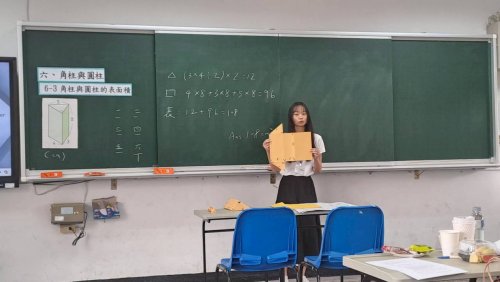 六、角柱與圓柱
6-3角柱與圓柱的表面積
(cm)
一 二
三 四
五 六
丁
△ (3×4÷2)×2=12
□ 4×8+3×8+5×8=96
表=12+96=108
Ans:108